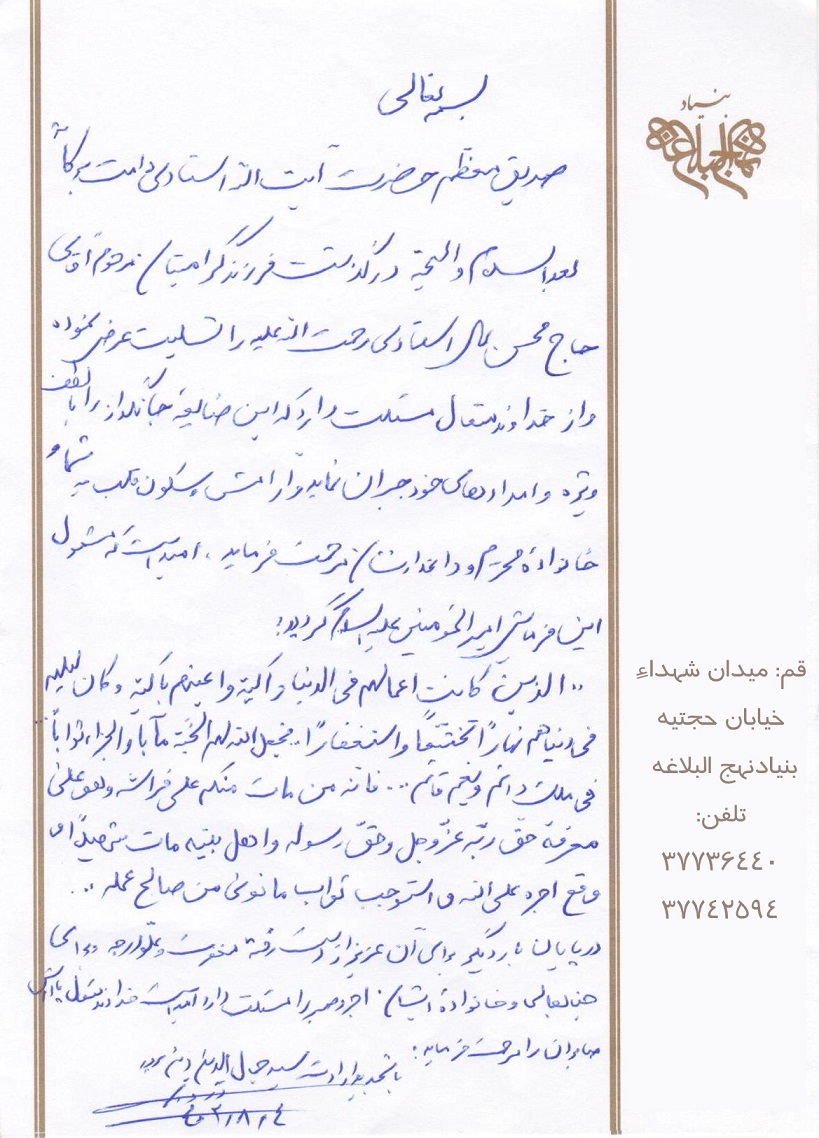 بسمه تعالی
صدیق معظم حضرت آیت الله استادی دامت برکاته
بعد السلام والتحیة درگذشت فرزند گرامیتان مرحوم آقای
حاج محسن استادی رحمت الله علیه را تسلیت عرض نموده
و از خداوند متعال مسئلت دارد که این ضایعه جانگداز را با لطف
ویژه و امدادهای خود جبران نماید و آرامش و سکون قلب به شما و
خانواده محترم و داغدارتان مرحمت فرماید، امید است که مشمول
این فرمایش امیرالمؤمنین علیه السلام گردید:
"الذین کانت اعمالهم فی الدنیا زاکیة و اعینهم باکیة و کان لیلهم
فی دنیاهم نهاراً تخشعاً واستغفاراً... فجعل الله لهم الجنة مآباً والجزاء ثواباً...
فی ملک دائم و نعیم قائم... فانه من مات منکم علی فراشه و هو علی
معرفة حق ربّه عزّوجل و حق رسوله و اهل بیته مات شهیداً و
وقع اجره علی الله و استوجب ثواب ما نوی من صالح عمله"
در پایان بار دیگر برای آن عزیز از دست رفته مغفرت و علوّ درجه و برای
جنابعالی و خانواده ایشان اجر و صبر را مسئلت دارد امید است خداوند متعال پاداش
صابران را مرحمت فرماید.
با تجدید ارادت سید جمال الدین دین پرور
۴ر۸ر۴۰۲
بنیاد
نهج البلاغه
قم: میدان شهداء
خیابان حجتیه
بنیادنهج البلاغه
تلفن:
۳۷۷۳۶۴۴۰
۳۷۷۴۲۵۹۴